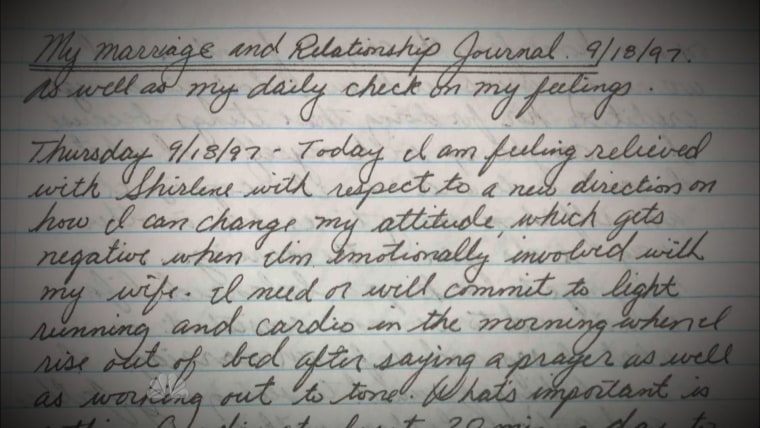 My marriage and Relationship Journal. 9/18/97.
As well as my daily check on my feelings.
Thursday 9/18/97 - Today I am feeling relieved
with Shirlene with respect to a new direction on
how I can change my attitude, which gets
negative when I'm emotionally involved with
my wife. I need or will commit to light
running and cardio in the morning when I
rise out of bed after saying a prayer as well
as working out to tone. What's important is